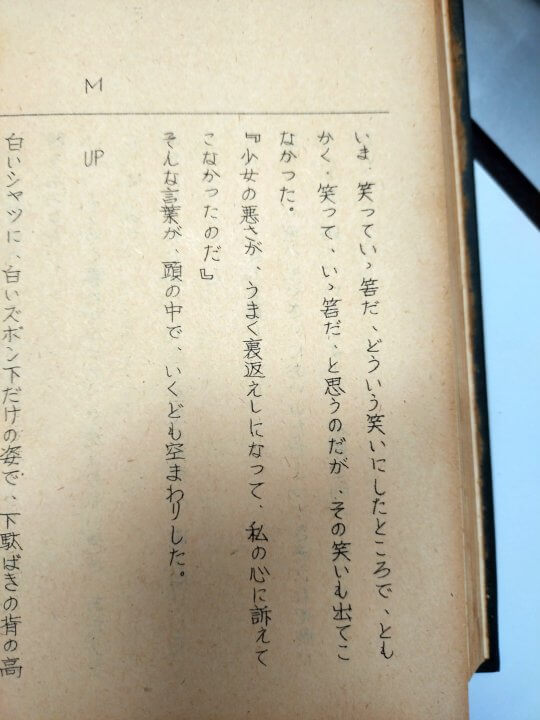 いま、笑っていゝ筈だ、どういう笑いにしたところで、とも
かく、笑って、いゝ筈だ、と思うのだが、その笑いも出てこ
なかった。
『少女の悪さが、うまく裏返えしになって、私の心に訴えて
こなかったのだ』
そんな言葉が、頭の中で、いくども空まわりした。
M
UP
白いシャツに、白いズボン下だけの姿で、下駄ばきの背の高